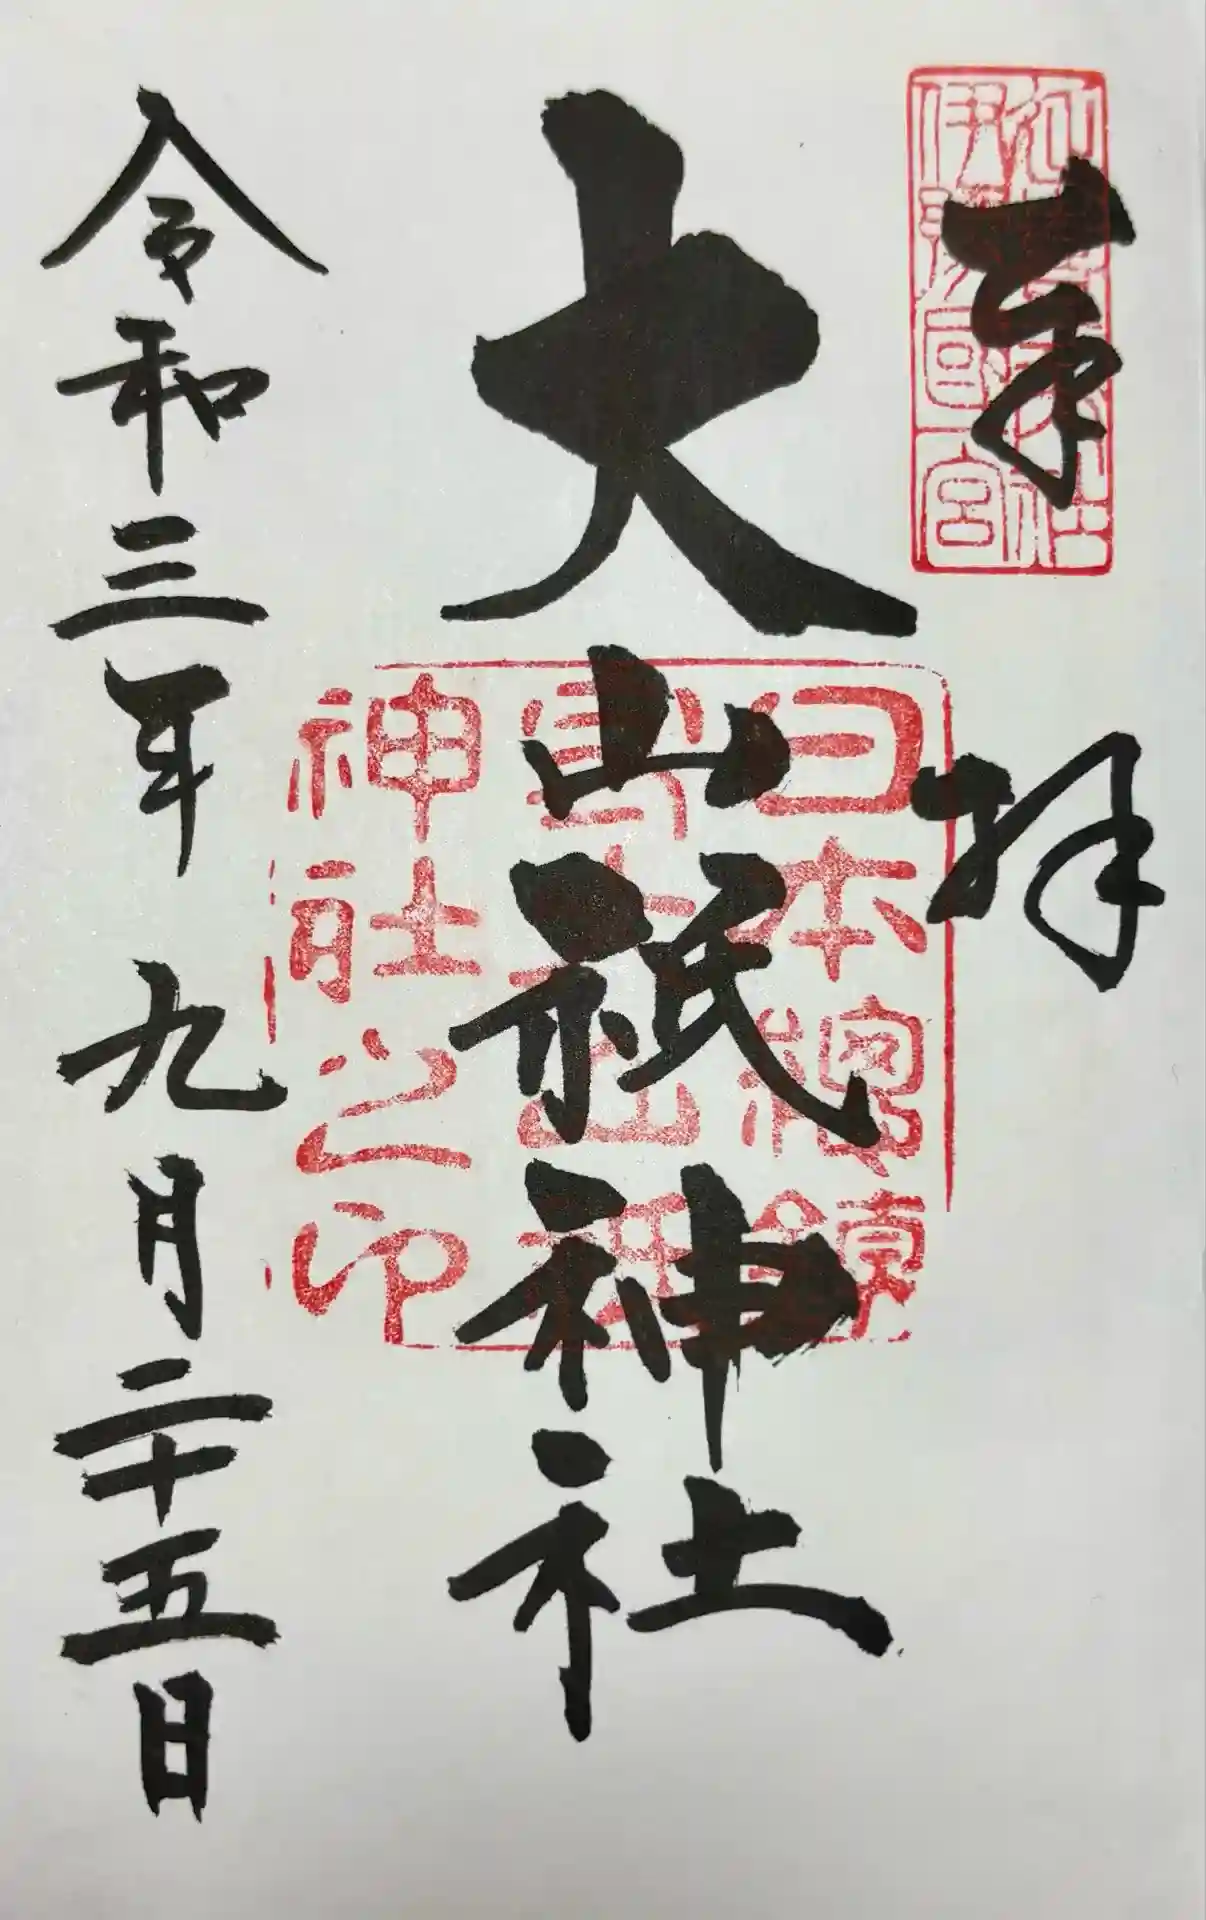 奉拝
伊豫國一宮
大山祇神社
日本總鎮
島大山祇
神社之印
令和三年九月二十五日